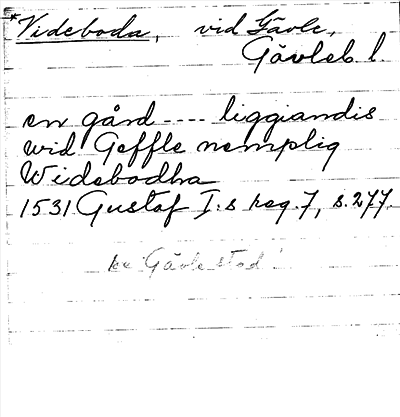 *Videboda, vid Gävle,
Gävleb. l.
en gård ---- liggiandis
wid Geffle nemplig
Widebodha
1531 Gustaf I:s reg. 7, s. 277.
Gävle stad